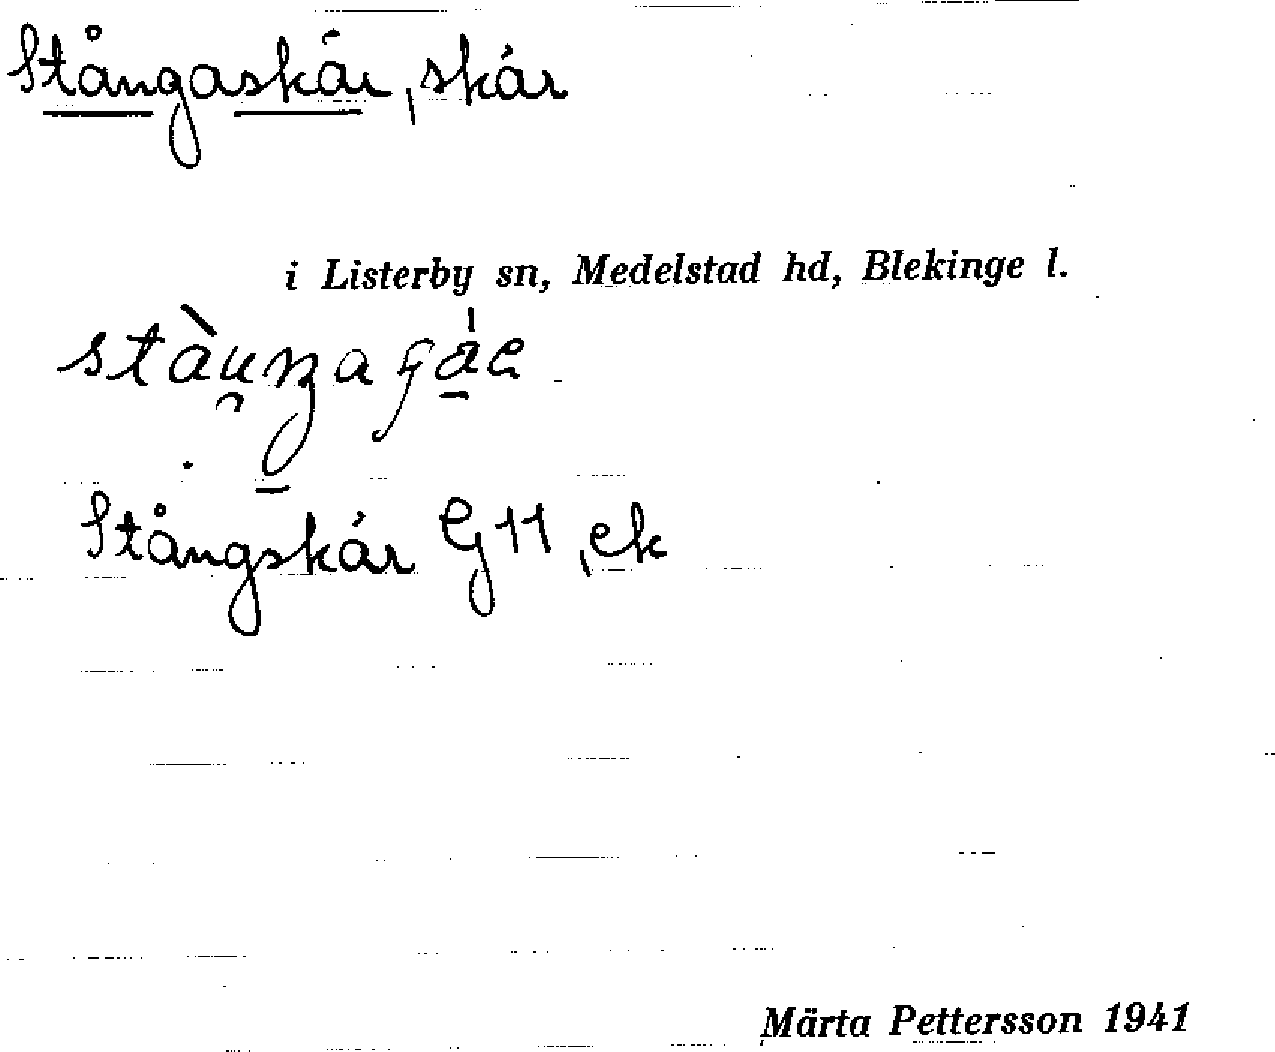 Stångaskär, skär
i Listerby sn, Medelstad hd, Blekinge l.
Stångskär G 11, ek
Märta Pettersson 1941